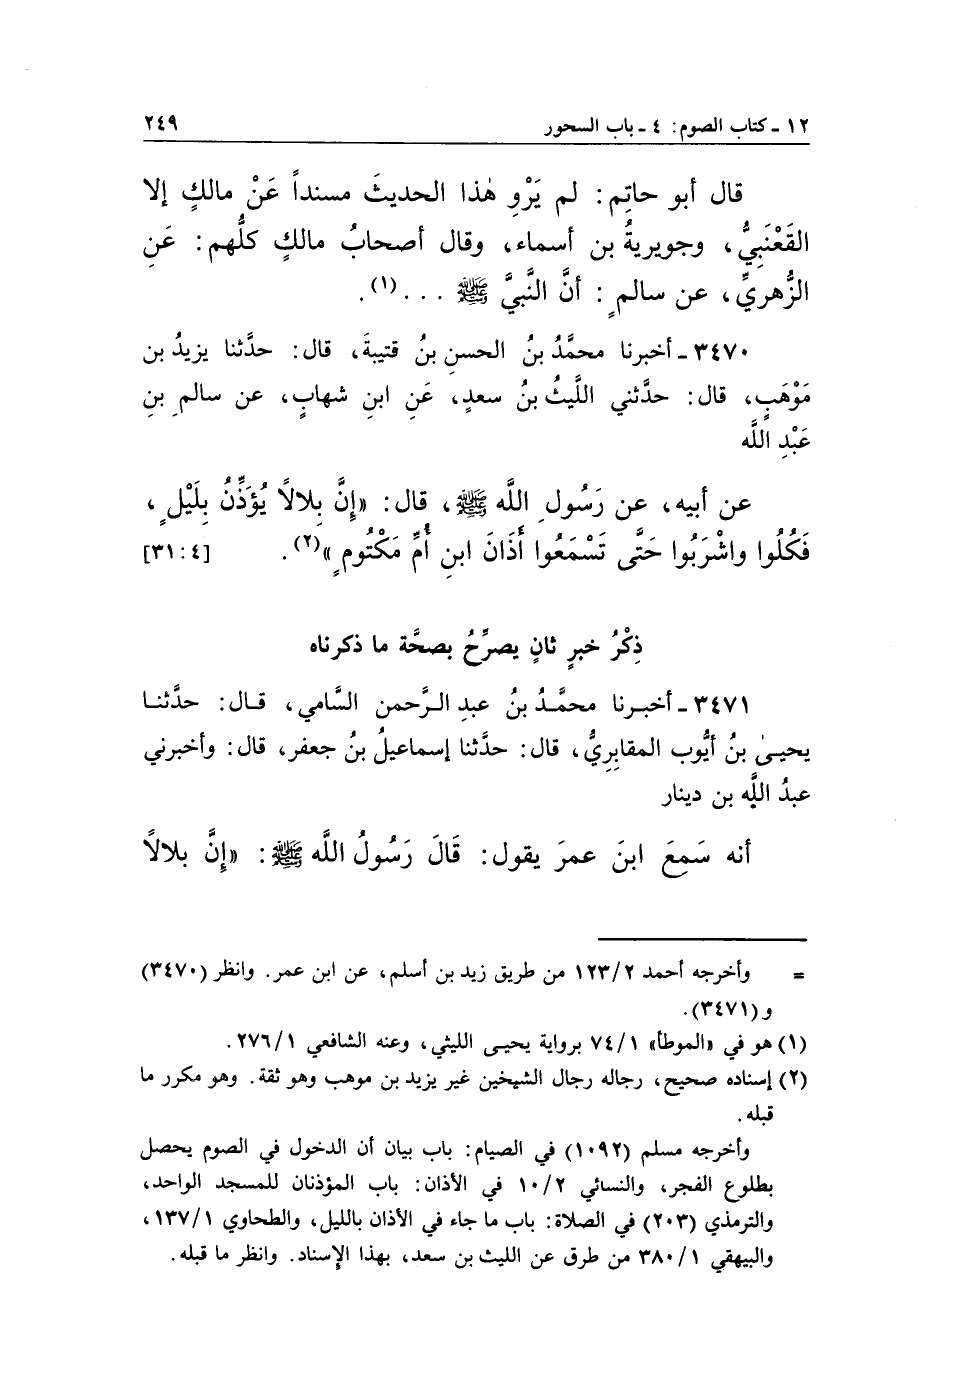 ١٢ - كتاب الصوم: ٤ - باب السحور ٢٤٩
قال أبو حاتِم: لم يَرْوِ هٰذا الحديثَ مسنداً عَنْ مالكٍ إلا
القَعْنَبِيُّ، وجويريةُ بن أسماء، وقال أصحابُ مالكٍ كلُّهم: عَنِ
الزُّهريِّ، عن سالمٍ: أنَّ النَّبيَّ ﷺ ...(١).
٣٤٧٠ - أخبرنا محمَّدُ بنُ الحسنِ بنُ قتيبةَ، قال: حدَّثنا يزيدُ بن
مَوْهَبٍ، قال: حدَّثني اللَّيثُ بنُ سعدٍ، عَنِ ابنِ شهابٍ، عن سالمِ بنِ
عَبْدِ اللَّه
عن أبيه، عن رَسُولِ اللَّه ﷺ، قال: «إِنَّ بِلالاً يُؤَذِّنُ بِلَيْلٍ،
فَكُلُوا واشْرَبُوا حَتَّى تَسْمَعُوا أَذَانَ ابنِ أُمِّ مَكْتُومٍ»(٢). [٤: ٣١]
ذِكْرُ خبرٍ ثانٍ يصرِّحُ بصحَّة ما ذكرناه
٣٤٧١ - أخبـرنا محمَّـدُ بنُ عبدِ الـرَّحمن السَّامي، قـال: حدَّثنـا
يحيـىٰ بنُ أيُّوب المقابِريُّ، قال: حدَّثنا إسماعيلُ بنُ جعفر، قال: وأخبرني
عبدُ اللَّه بن دينار
أنه سَمِعَ ابنَ عمرَ يقول: قَالَ رَسُولُ اللَّه ﷺ: «إِنَّ بلالاً
= وأخرجه أحمد ١٢٣/٢ من طريق زيد بن أسلم، عن ابن عمر. وانظر (٣٤٧٠)
و (٣٤٧١).
(١) هو في «الموطأ» ٧٤/١ برواية يحيـى الليثي، وعنه الشافعي ٢٧٦/١.
(٢) إسناده صحيح، رجاله رجال الشيخين غير يزيد بن موهب وهو ثقة. وهو مكرر ما
قبله.
وأخرجه مسلم (١٠٩٢) في الصيام: باب بيان أن الدخول في الصوم يحصل
بطلوع الفجر، والنسائي ١٠/٢ في الأذان: باب المؤذنان للمسجد الواحد،
والترمذي (٢٠٣) في الصلاة: باب ما جاء في الأذان بالليل، والطحاوي ١٣٧/١،
والبيهقي ٣٨٠/١ من طرق عن الليث بن سعد، بهذا الإسناد. وانظر ما قبله.